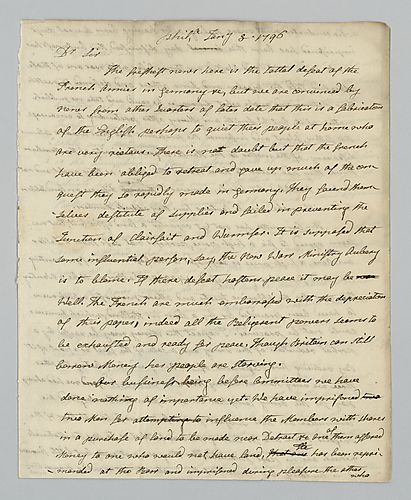 Phila Jany 3. 1796
Dr Sir
The freshest news here is the tottal defeat of the
French Armies in Germany &c, but we are convinced by
news from other Quarters of later date that this is a fabrication
of the English perhaps to quiet their people at home who
are very riotous. There is not doubt but that the french
have been obliged to retreat and gave up much of the con
quest they so rapidly made in Germany. They found them
selves destitute of supplies and failed in preventing the
Junction of Clairfait and Wurmser. It is supposed that
some influential person, say, the New War Ministry Aubery
is to blame. If there defeat hastens peace it may be
Well. The French are much embarrassed with the depreciation
of this paper; indeed all the Beligerent powers seems to
be exhausted and ready for peace. Though Britain can still
borrow Money her people are starving.
Our business being before Committees we have
done nothing of importance yet. We have imprisoned two
two Men for attempting to influence the Members with shares
in a purchase of land to be made near Detroit &c One of them offered
Money to one who would not have land, that one The has been repri
manded at the Barr and imprisoned during pleasure the other
who